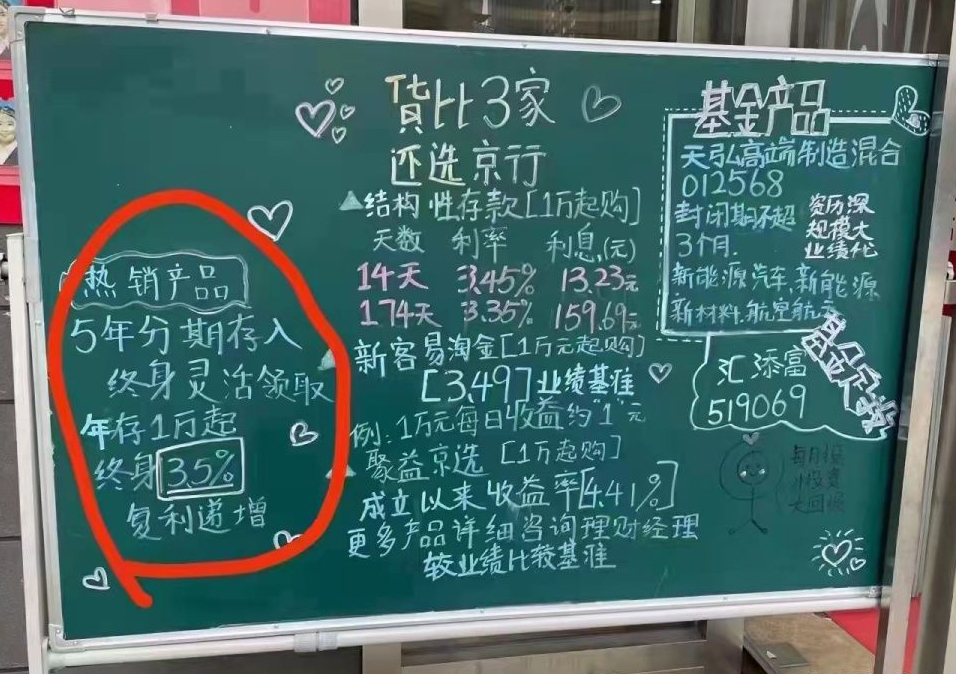 货比3家
还选京行
结构性存款[1万起购]
天数 利率 利息(元)
14天 3.45% 13.23元
174天 3.35% 159.69元
新客易淘金[1万元起购]
[3.49]业绩基准
例:1万元每日收益约"1"元
聚益京选 [1万起购]
成立以来收益率[4.41%]
更多产品详细咨询理财经理
较业绩比较基准
热销产品
5年分期存入
终身灵活领取
年存1万起
终身3.5%
复利递增
基金产品
天弘高端制造混合
012568
封闭期不超
3个月
资历深
规模大
业绩优
新能源汽车,新能源
新材料.航空航天
汇添富
519069
每月
小投资
大回报